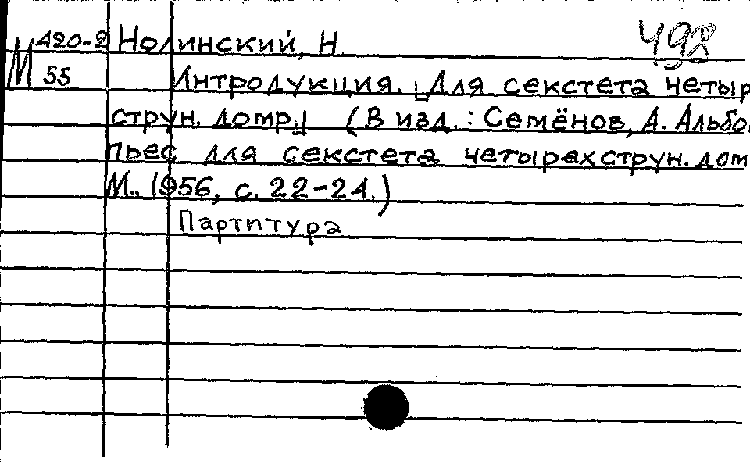 М 420-2 Нолинский, Н. 498
55 Интродукция. [Для секстета четыр
струн. домр.] (В изд.: Семёнов, А. Альбо
пьес для секстета четырехструн. дом
М., 1956, с. 22-24.)
Партитура